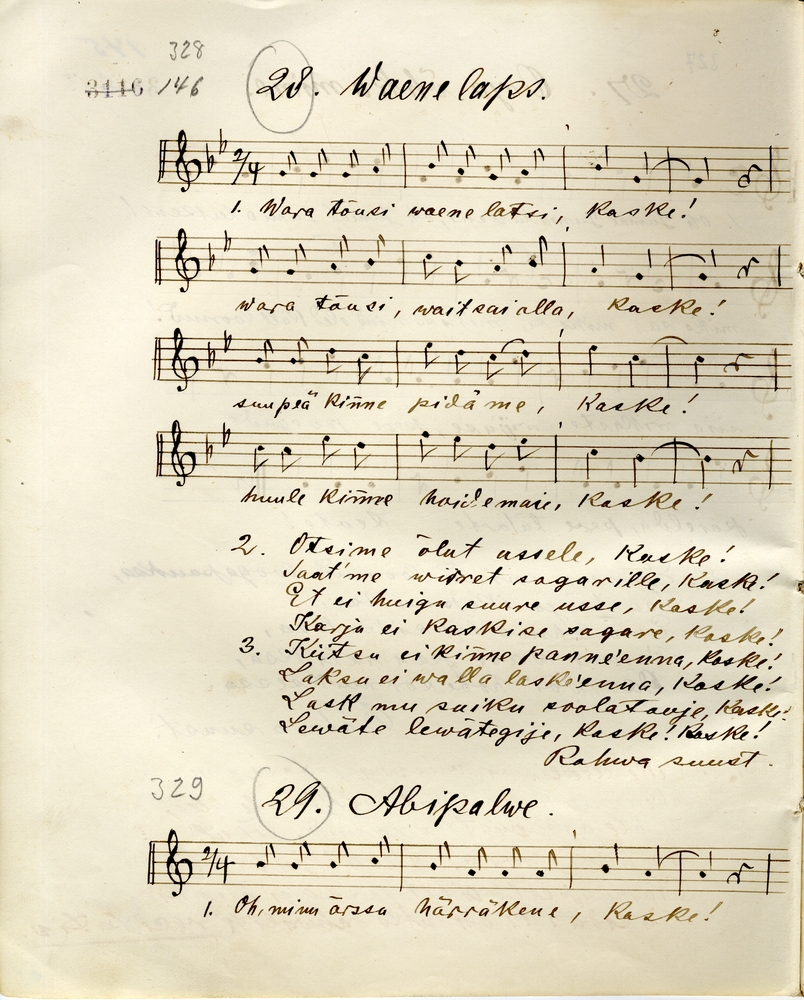 328
3116 146 28. Waene laps.
2/4
1. Wara tõusi waene latsi, Kaske!
wara tõusi, waitsai alla, Kaske!
suu peä kinne pidäme, Kaske!
huule kinne hoidemaie, Kaske!
2. Otsime õlut ussele, Kaske!
Saat'me wiiret sagarille, Kaske!
Et ei huigu suure usse, Kaske!
Karju ei kaskise sagare, Kaske!
3. Kiitsu ei kinne panne'enna, Kaske!
Laksu ei walla laske'enna, Kaske!
Lask mu suiku soolatooje, Kaske!
Lewäte lewätegije, Kaske! Kaske!
Rahwa suust.
329 29. Abipalwe.
2/4
1. Oh, minu ärssa härräkene, Kaske!